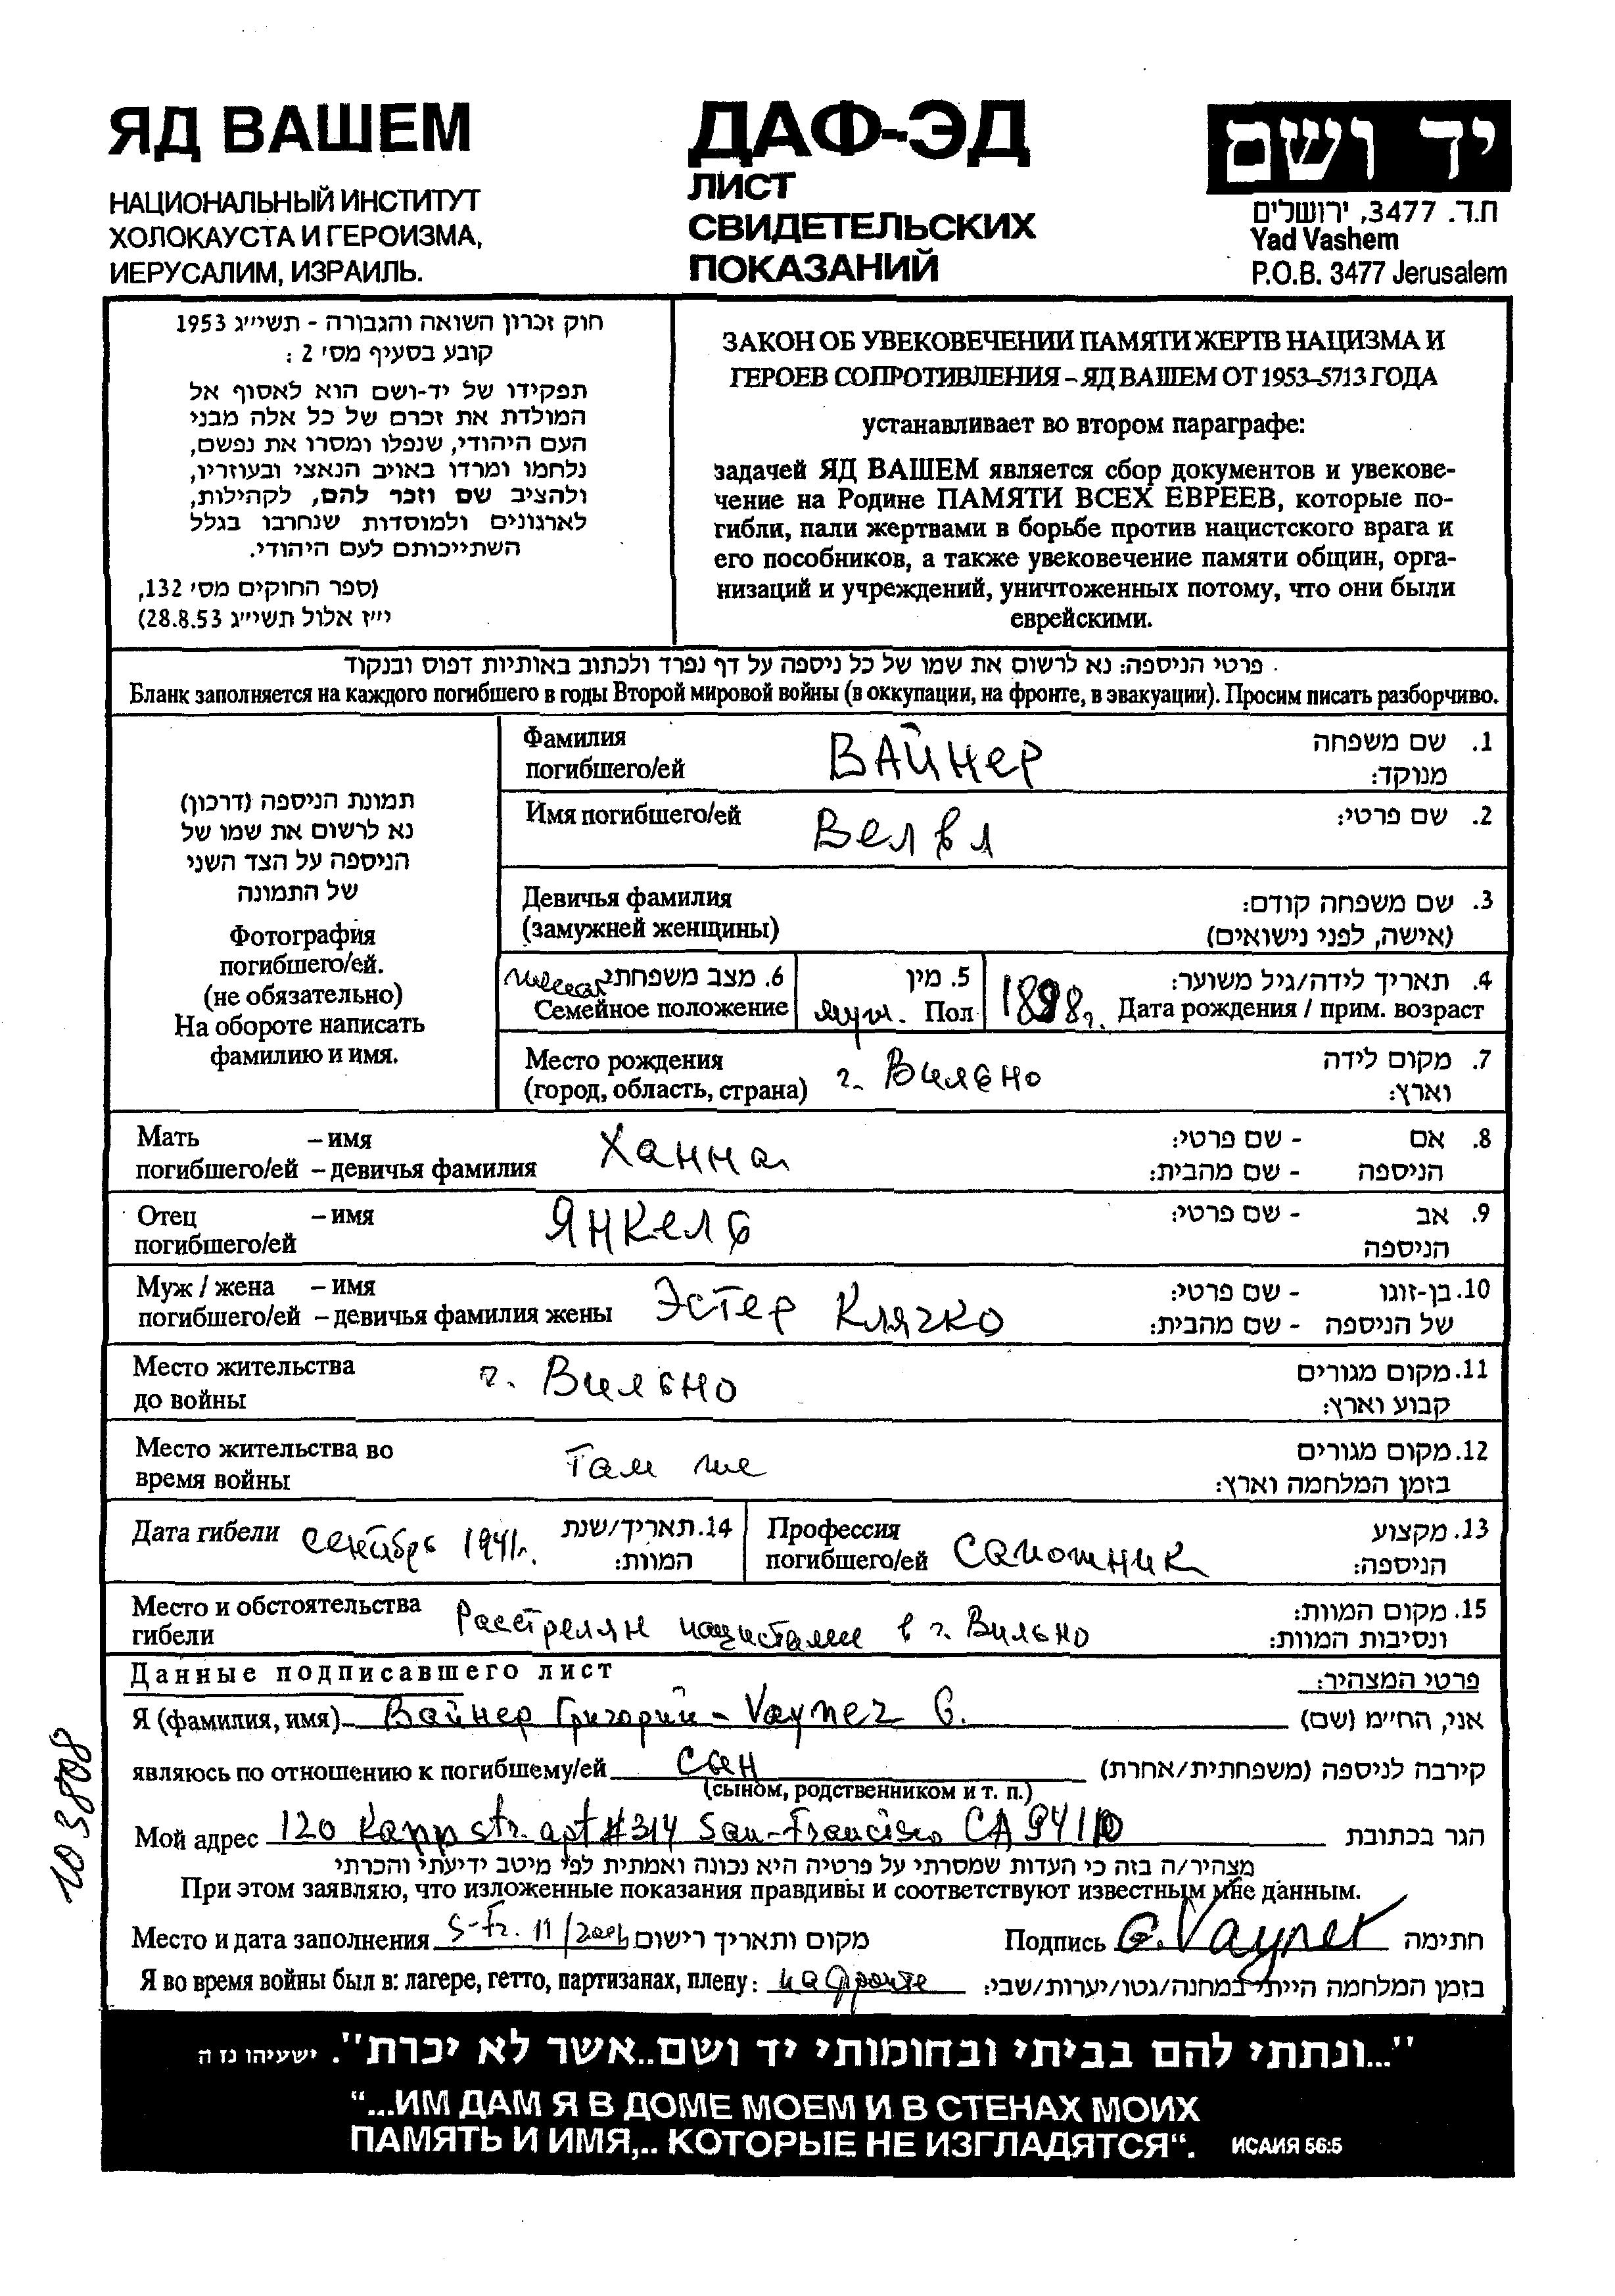 ЯД ВАШЕМ
НАЦИОНАЛЬНЫЙ ИНСТИТУТ
ХОЛОКАУСТА И ГЕРОИЗМА,
ИЕРУСАЛИМ, ИЗРАИЛЬ.
ДАФ-ЭД
ЛИСТ
СВИДЕТЕЛЬСКИХ
ПОКАЗАНИЙ
יד ושם
ת.ד. 3477, ירושלים
Yad Vashem
P.O.B. 3477 Jerusalem
חוק זכרון השואה והגבורה - תשי״ג 1953
קובע בסעיף מס׳ 2 :
תפקידו של יד-ושם הוא לאסוף אל
המולדת את זכרם של כל אלה מבני
העם היהודי, שנפלו ומסרו את נפשם,
נלחמו ומרדו באויב הנאצי ובעוזריו,
ולהציב שם וזכר להם, לקהילות,
לארגונים ולמוסדות שנחרבו בגלל
השתייכותם לעם היהודי.
(ספר החוקים מס׳ 132,
י״ז אלול תשי״ג 28.8.53)
ЗАКОН ОБ УВЕКОВЕЧЕНИИ ПАМЯТИ ЖЕРТВ НАЦИЗМА И
ГЕРОЕВ СОПРОТИВЛЕНИЯ – ЯД ВАШЕМ ОТ 1953–5713 ГОДА
устанавливает во втором параграфе:
задачей ЯД ВАШЕМ является сбор документов и увекове-
чение на Родине ПАМЯТИ ВСЕХ ЕВРЕЕВ, которые по-
гибли, пали жертвами в борьбе против нацистского врага и
его пособников, а также увековечение памяти общин, орга-
низаций и учреждений, уничтоженных потому, что они были
еврейскими.
פרטי הניספה: נא לרשום את שמו של כל ניספה על דף נפרד ולכתוב באותיות דפוס ובנקוד
Бланк заполняется на каждого погибшего в годы Второй мировой войны (в оккупации, на фронте, в эвакуации). Просим писать разборчиво.
תמונת הניספה (דרכון)
נא לרשום את שמו של
הניספה על הצד השני
של התמונה
Фотография
погибшего/ей.
(не обязательно)
На обороте написать
фамилию и имя.
Фамилия ВАЙНЕР 1. שם משפחה
погибшего/ей מנוקד:
Имя погибшего/ей Велвл 2. שם פרטי:
Девичья фамилия 3. שם משפחה קודם:
(замужней женщины) (אישה, לפני נישואים)
6. מצב משפחתי 5. מין 4. תאריך לידה/גיל משוער:
Семейное положение муж. Пол 1898г. Дата рождения / прим. возраст
Место рождения г. Вильно 7. מקום לידה
(город, область, страна) וארץ:
Мать – имя Ханна 8. אם - שם פרטי:
погибшего/ей – девичья фамилия הניספה - שם מהבית:
Отец – имя ЯНКЕЛЬ 9. אב - שם פרטי:
погибшего/ей הניספה
Муж / жена – имя Эстер Клячко 10. בן-זוגו - שם פרטי:
погибшего/ей – девичья фамилия жены של הניספה - שם מהבית:
Место жительства г. Вильно 11. מקום מגורים
до войны קבוע וארץ:
Место жительства во там же 12. מקום מגורים
время войны בזמן המלחמה וארץ:
Дата гибели сентябрь 1941г. 14. תאריך/שנת
המוות:
Профессия Сапожник 13. מקצוע
погибшего/ей הניספה:
Место и обстоятельства Расстрелян нацистами в г. Вильно 15. מקום המוות:
гибели ונסיבות המוות:
Данные подписавшего лист פרטי המצהיר:
Я (фамилия, имя) Вайнер Григорий – Vayner G. אני, החי״מ (שם)
являюсь по отношению к погибшему/ей сын קירבה לניספה (משפחתית/אחרת)
(сыном, родственником и т. п.)
Мой адрес 120 Kapp str. apt #314 San-Francisco CA 94110 הגר בכתובת
מצהיר/ה בזה כי העדות שמסרתי על פרטיה היא נכונה ואמתית לפי מיטב ידיעתי והכרתי
При этом заявляю, что изложенные показания правдивы и соответствуют известным мне данным.
Место и дата заполнения S-Fr. 11/ מקום ותאריך רישום Подпись G. Vayner חתימה
Я во время войны был в: лагере, гетто, партизанах, плену: на фронте בזמן המלחמה הייתי במחנה/גטו/יערות/שבי:
103808
"...ונתתי להם בביתי ובחומותי יד ושם..אשר לא יכרת". ישעיהו נז ה
“...ИМ ДАМ Я В ДОМЕ МОЕМ И В СТЕНАХ МОИХ
ПАМЯТЬ И ИМЯ,.. КОТОРЫЕ НЕ ИЗГЛАДЯТСЯ“. ИСАИЯ 56:5